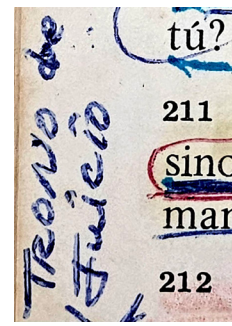 TRONO de
Juicio
tú?
211
sino
mar
212